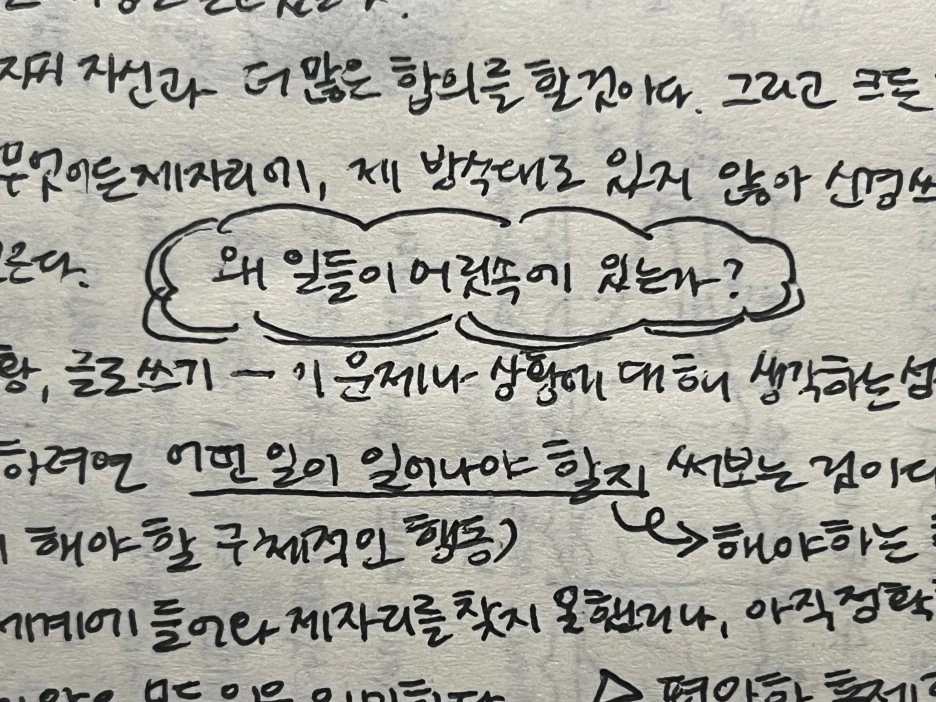 자신과 더 많은 합의를 할것이다. 그리고 크든
무엇이든 제자리에, 제 방식대로 있지 않아 신경쓰
른다.
왜 일들이 머릿속에 있는가?
황, 글로쓰기 – 이 문제나 상황에 대해 생각하는
하려면 어떤 일이 일어나야 할지 써보는 것이다
해야 할 구체적인 행동)
해야하는
세계에 들어와 제자리를 찾지 못했거나, 아직 정확